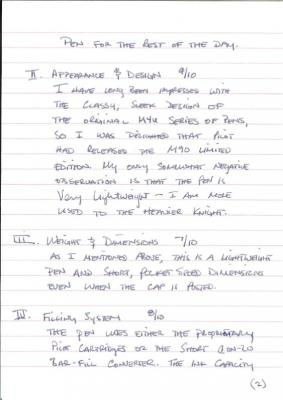 PEN FOR THE REST OF THE DAY.
II. APPEARANCE & DESIGN 9/10
I HAVE LONG BEEN IMPRESSED WITH
THE CLASSY, SLEEK DESIGN OF
THE ORIGINAL MYU SERIES OF PENS,
SO I WAS DELIGHTED THAT PILOT
HAD RELEASED THE M90 LIMITED
EDITION. MY ONLY SOMEWHAT NEGATIVE
OBSERVATION IS THAT THE PEN IS
VERY LIGHTWEIGHT - I AM MORE
USED TO THE HEAVIER KNIGHT.
III. WEIGHT & DIMENSIONS 7/10
AS I MENTIONED ABOVE, THIS IS A LIGHTWEIGHT
PEN AND SHORT, POCKET SIZED DIMENSIONS
EVEN WHEN THE CAP IS POSTED.
IV. FILLING SYSTEM 8/10
THE PEN USES EITHER THE PROPRIETARY
PILOT CARTRIDGES OR THE SHORT CON-20
BAR-FILL CONVERTER. THE INK CAPACITY
(2)